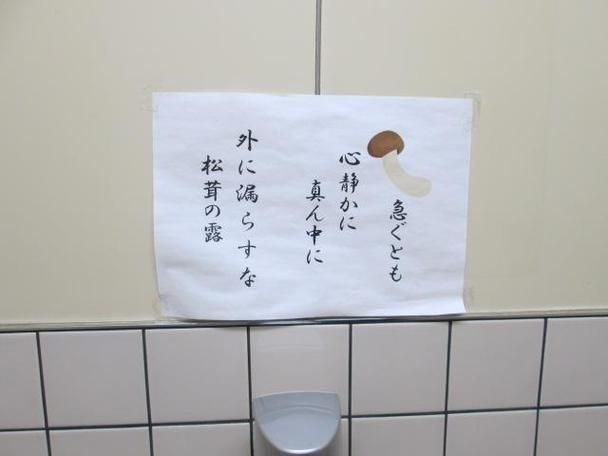 急ぐとも
心静かに
真ん中に
外に漏らすな
松茸の露